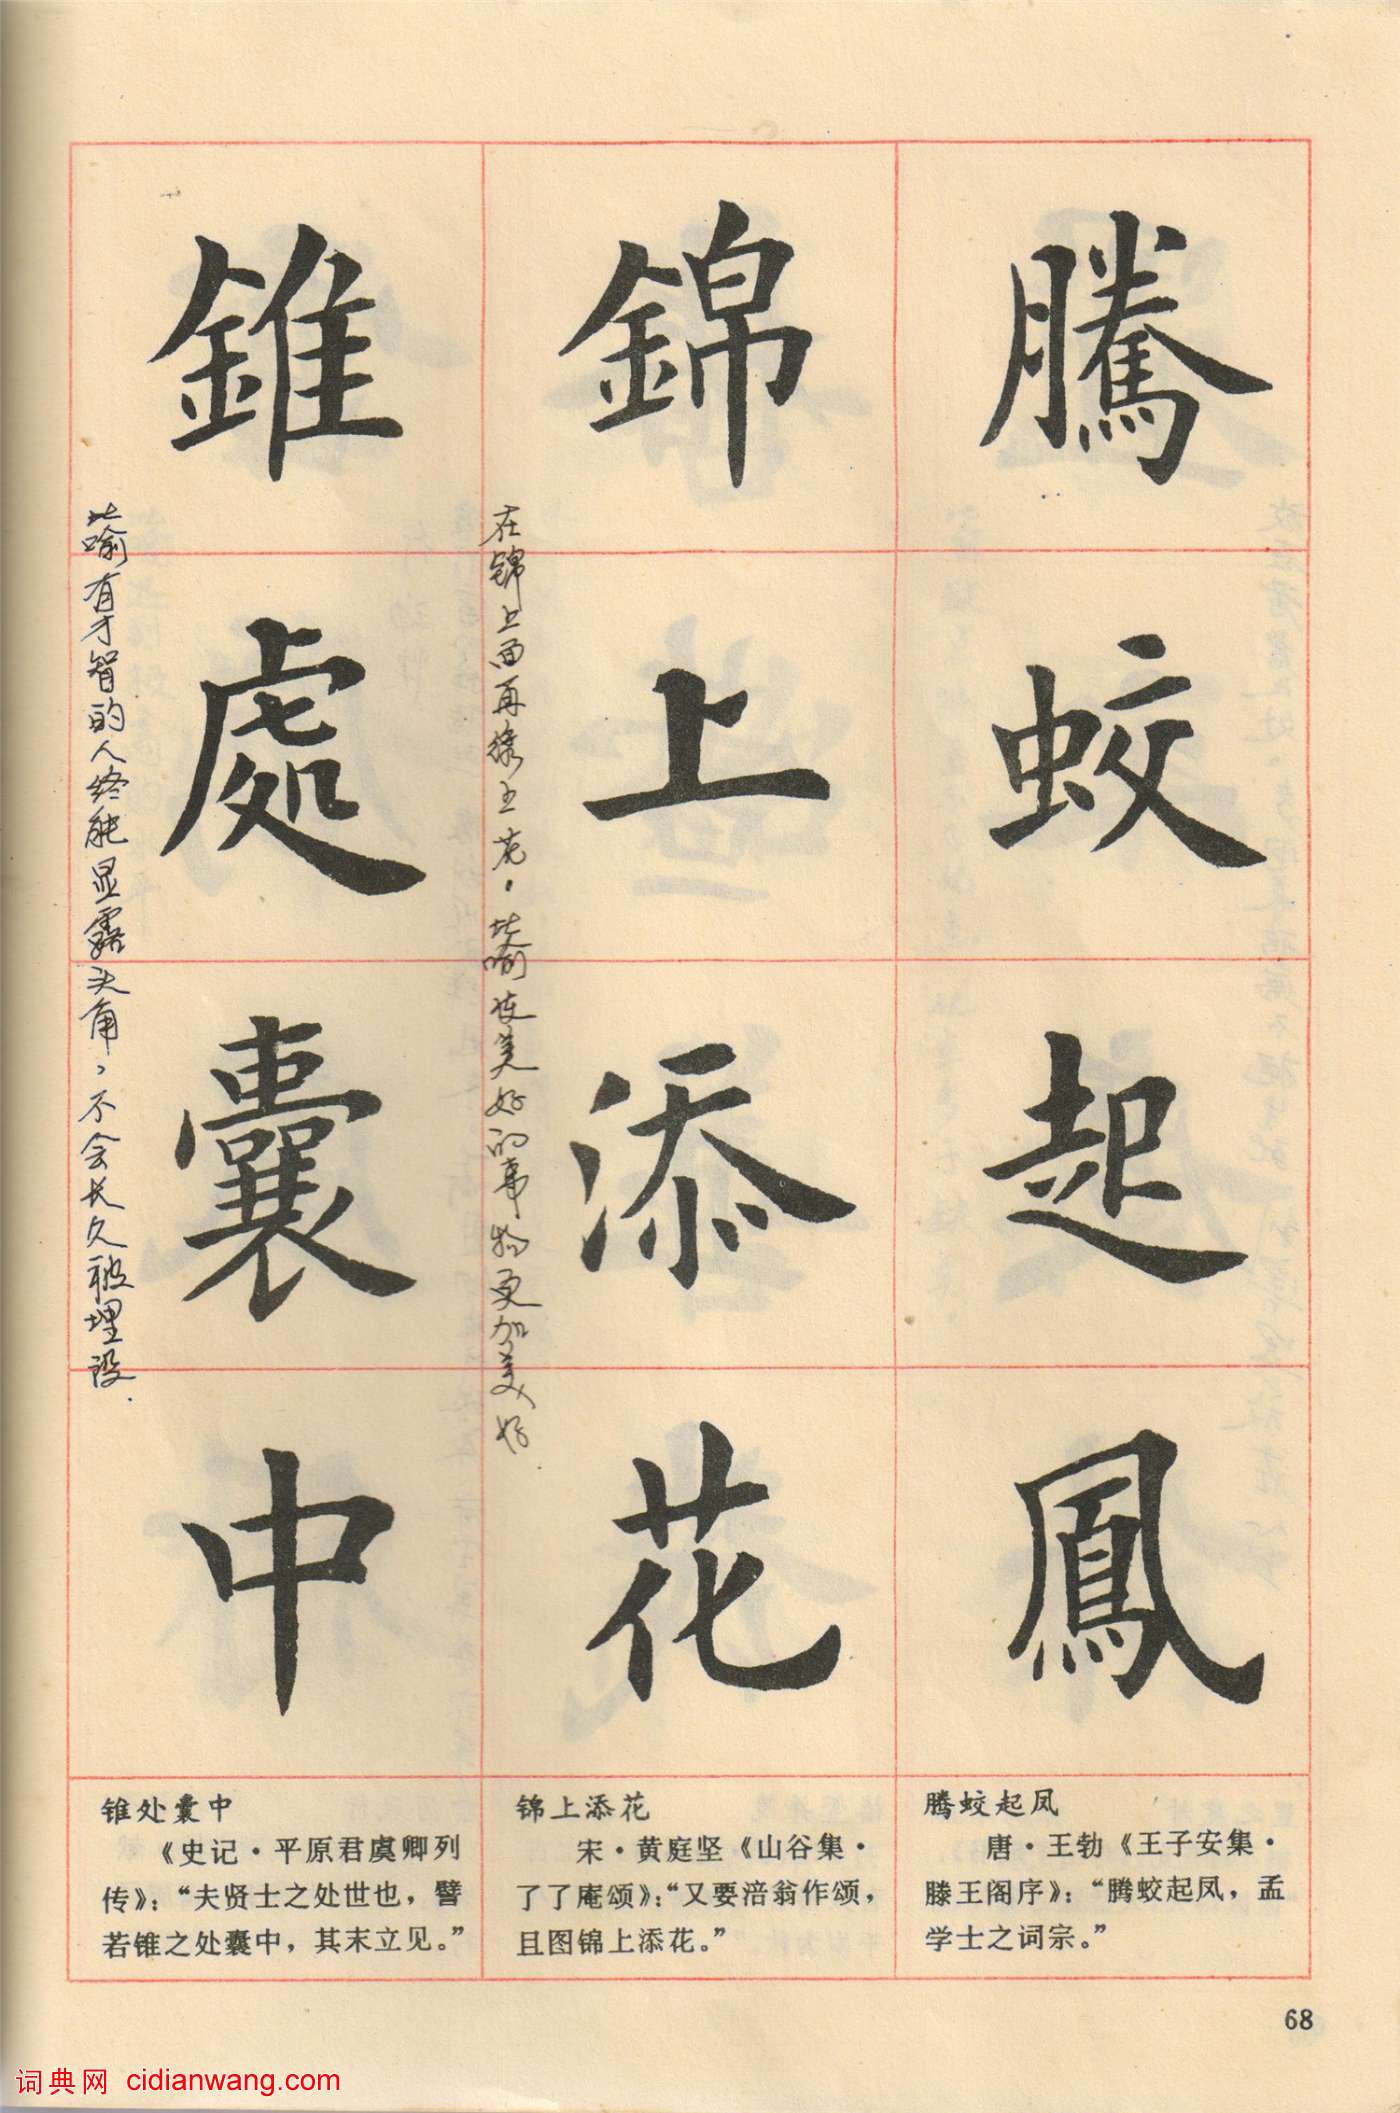 騰蛟起鳳
錦上添花
錐處囊中
在锦上面再绣上花，比喻使美好的事物更加美好
比喻有才智的人终能显露头角，不会长久被埋没.
腾蛟起凤
唐·王勃《王子安集·
滕王阁序》：“腾蛟起凤，孟
学士之词宗。”
锦上添花
宋·黄庭坚《山谷集·
了了庵颂》：“又要涪翁作颂，
且图锦上添花。”
锥处囊中
《史记·平原君虞卿列
传》：“夫贤士之处世也，譬
若锥之处囊中，其末立见。”
68
词典网 cidianwang.com